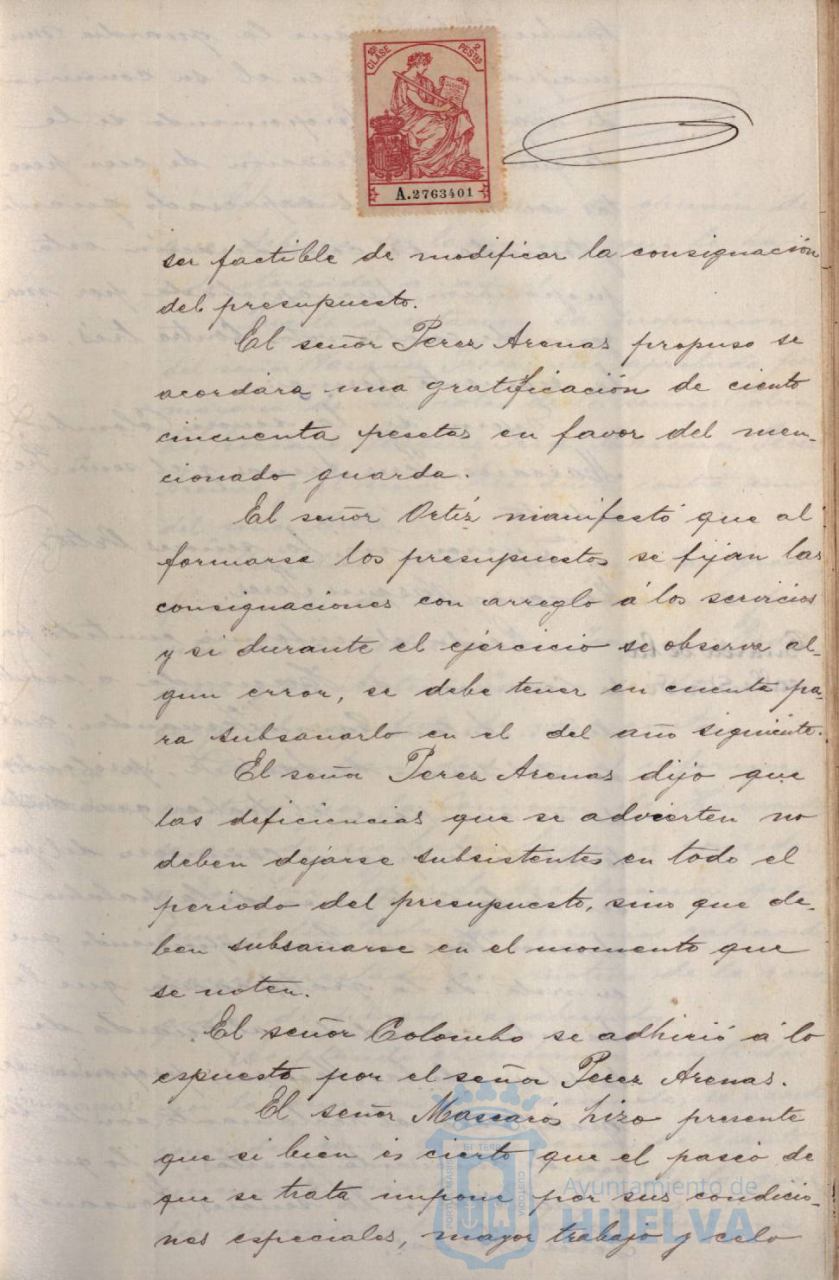 10ª CLASE
2 PESTAS
A.2763401
ser factible de modificar la consignación
del presupuesto.
El señor Perez Arenas propuso se
acordára una gratificación de ciento
cincuenta pesetas en favor del men-
cionado guarda.
El señor Ortíz manifestó que al
formarse los presupuestos se fijan las
consignaciones con arreglo á los servicios
y si durante el ejercicio se observa al-
gun error, se debe tener en cuenta pa-
ra subsanarlo en el del año siguiente.
El señor Perez Arenas dijo que
las deficiencias que se advierten no
deben dejarse subsistentes en todo el
periodo del presupuesto, sino que de-
ben subsanarse en el momento que
se noten.
El señor Colombo se adhirió á lo
espuesto por el señor Perez Arenas.
El señor Mascarós hizo presente
que si bien és cierto que el paseo de
que se trata impone por sus condicio-
nes especiales, mayor trabajo y celo
Ayuntamiento de
HUELVA